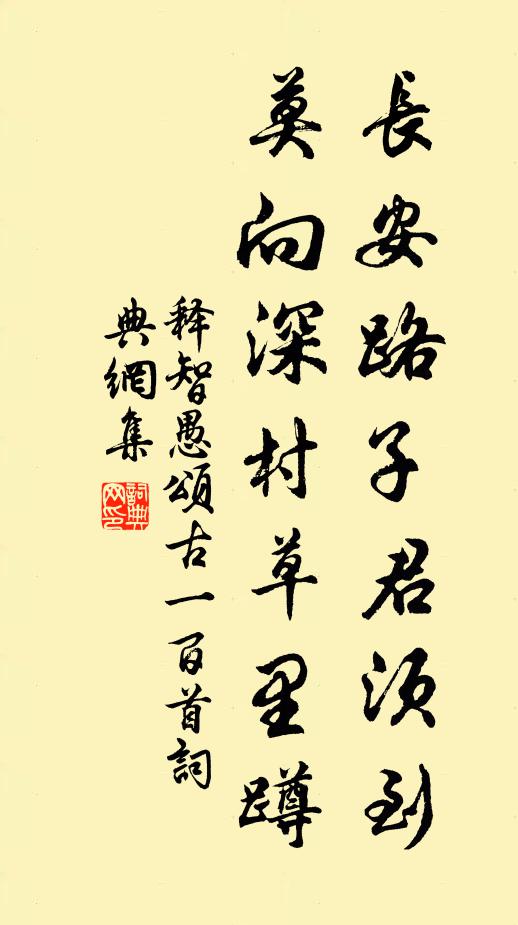 長安路子君须到
莫向深村草里蹲
释智愚頌古一百首詞
典網集
詞典
网印